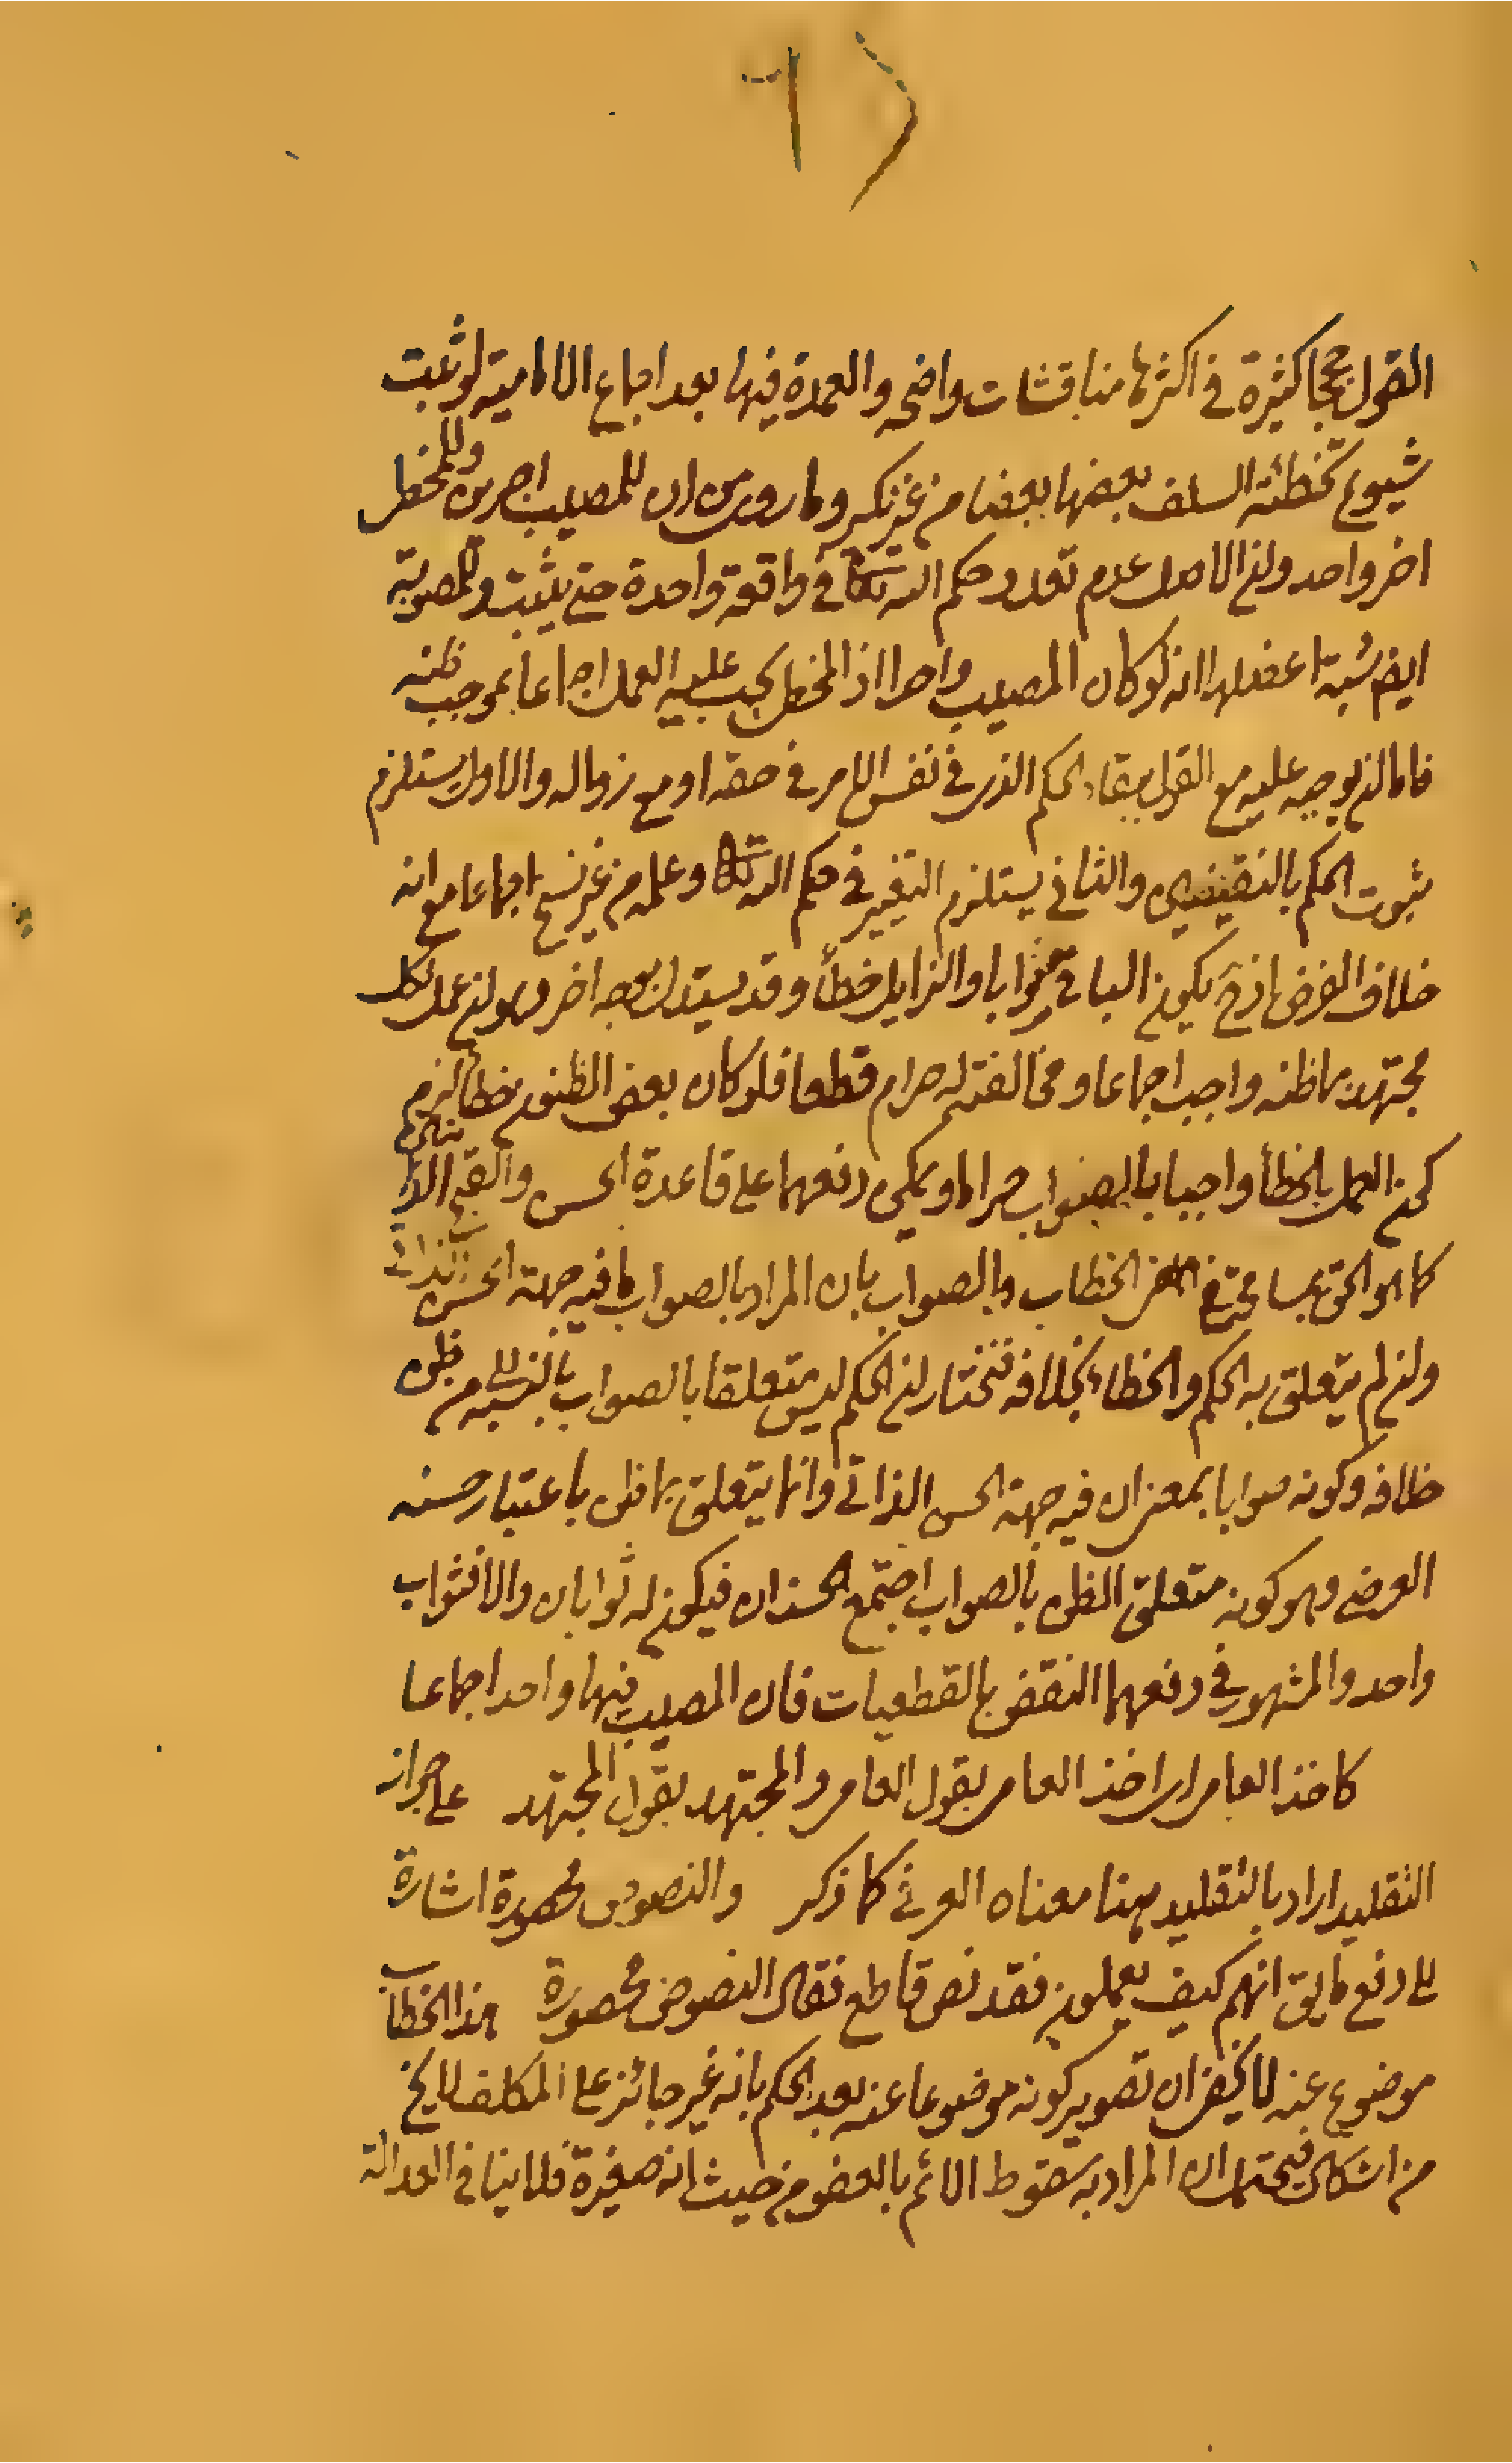 القول حججا كثيرة في اكثرها مناقشات واضحه والعمدة فيها بعد اجماع الامامية لو ثبت
شيوع تخطئة السلف بعضها بعضا من غير نكير وما روى من ان للمصيب اجرين وللمخطى
اجر واحد ولان الاصل عدم تعدد حكم الله تعالى في واقعة واحدة حتى يثبت وللمصوبة
ايض شبهتا احديهما انه لو كان المصيب واحدا اذ المخطى يجب عليه العمل اجماعا بموجب ظنه
فاما ان يوجبه عليه مع القول ببقاء الحكم الذى في نفس الامر في حقه او مع زواله والاول يستلزم
ثبوت الحكم بالنقيضين والثاني يستلزم التغيير في حكم الله تعالى وعلمه من غير نسخ اجماعا مع انه
خلاف الفرض اذ ح يكون الباقى صوابا والزايل خطأ وقد يستدل بوجه اخر وهو ان عمل كل
مجتهد بما ظنه واجب اجماعا ومخالفته له حرام قطعا فلو كان بعض الظنون خطأ لزم
كون العمل بالخطأ واجبا بالصواب حراما ويمكن دفعهما على قاعدة الحسن والقبح الذاتيين
كما هو الحق بمسامحة في الخطاب وبالصواب بان المراد بالصواب ما فيه جهة الحسن الذاتي
وان لم يتعلق به الحكم والخطاء بخلافه فنختار ان الحكم ليس متعلقا بالصواب بالنسبة الى من ظن
خلافه وكونه صوابا بمعنى ان فيه جهة الحسن الذاتى وانما يتعلق بما ظن باعتبار حسنه
العرضى وهو كونه متعلق الظن بالصواب اجتمع الحسنان فيكون له ثوابان والا فثواب
واحد والمشهور في دفعهما النقض بالقطعيات فان المصيب فيها واحد اجماعا
كاخذ العامى اى اخذ العامى بقول العامى والمجتهد بقول المجتهد على جواز
التقليد اراد بالتقليد ههنا معناه العرفى كما ذكر والنصوص محصورة اشارة
الى دفع ما يق انهم كيف يعملون فقد نص قاطع فقال النصوص محصورة هذا الخطاب
موضوع عنه لا يخفى ان تصوير كونه موضوعا عنه بعد الحكم بانه غير جائز على المكلف لا يخ
من اشكال فيحتمل ان المراد به سقوط الاثم بالعفو من حيث انه صغيرة فلا ينافى العدالة